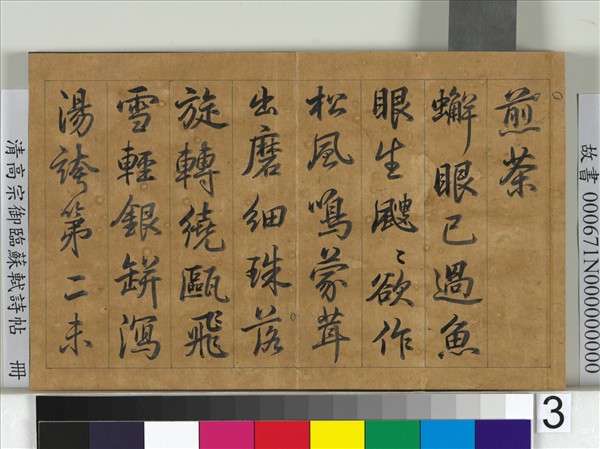 煎茶
蠏眼已過魚
眼生颼〻欲作
松風鳴蒙茸
出磨細珠落
旋轉繞甌飛
雪輕銀缾瀉
湯誇第二未
故書 000671N000000000
清高宗御臨蘇軾詩帖 冊
3